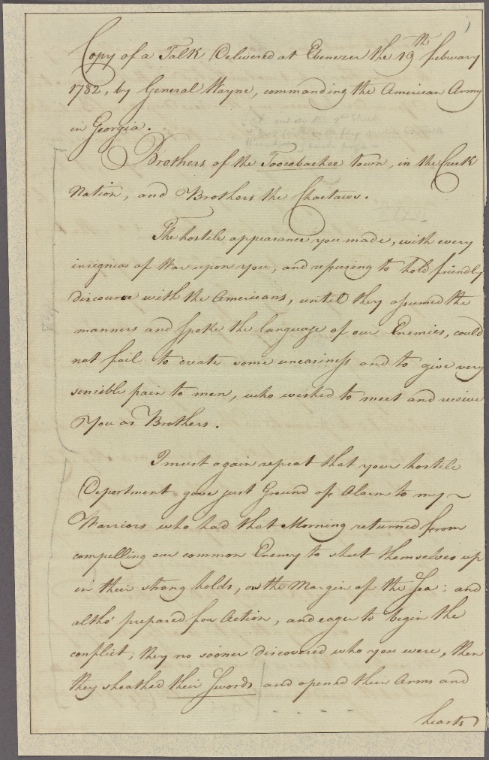 Copy of a Talk Delivered at Ebenezer the 19th february
1782, by General Wayne, commanding the American Army
in Georgia.
Brothers of the Toosabachee town, in the Creek
Nation, and Brothers the Choctaws.
The hostile appearance you made, with every
insignia of War upon you, and refusing to hold friendly
discourse with the Americans, until they assumed the
manners and spoke the language of our Enemies, could
not fail to create some uneasiness and to give very
sensible pain to men, who wished to meet and receive
You as Brothers.
I must again repeat that your hostile
Deportment gave just Ground of Alarm to my
Warriors who had that Morning returned from
compelling our common Enemy to shut themselves up
in their strong holds, on the Margin of the Sea: and
altho' prepared for Action, and eager to begin the
conflict, they no sooner discovered who you were, then
they sheathed their Swords and opened their Arms and
hearts